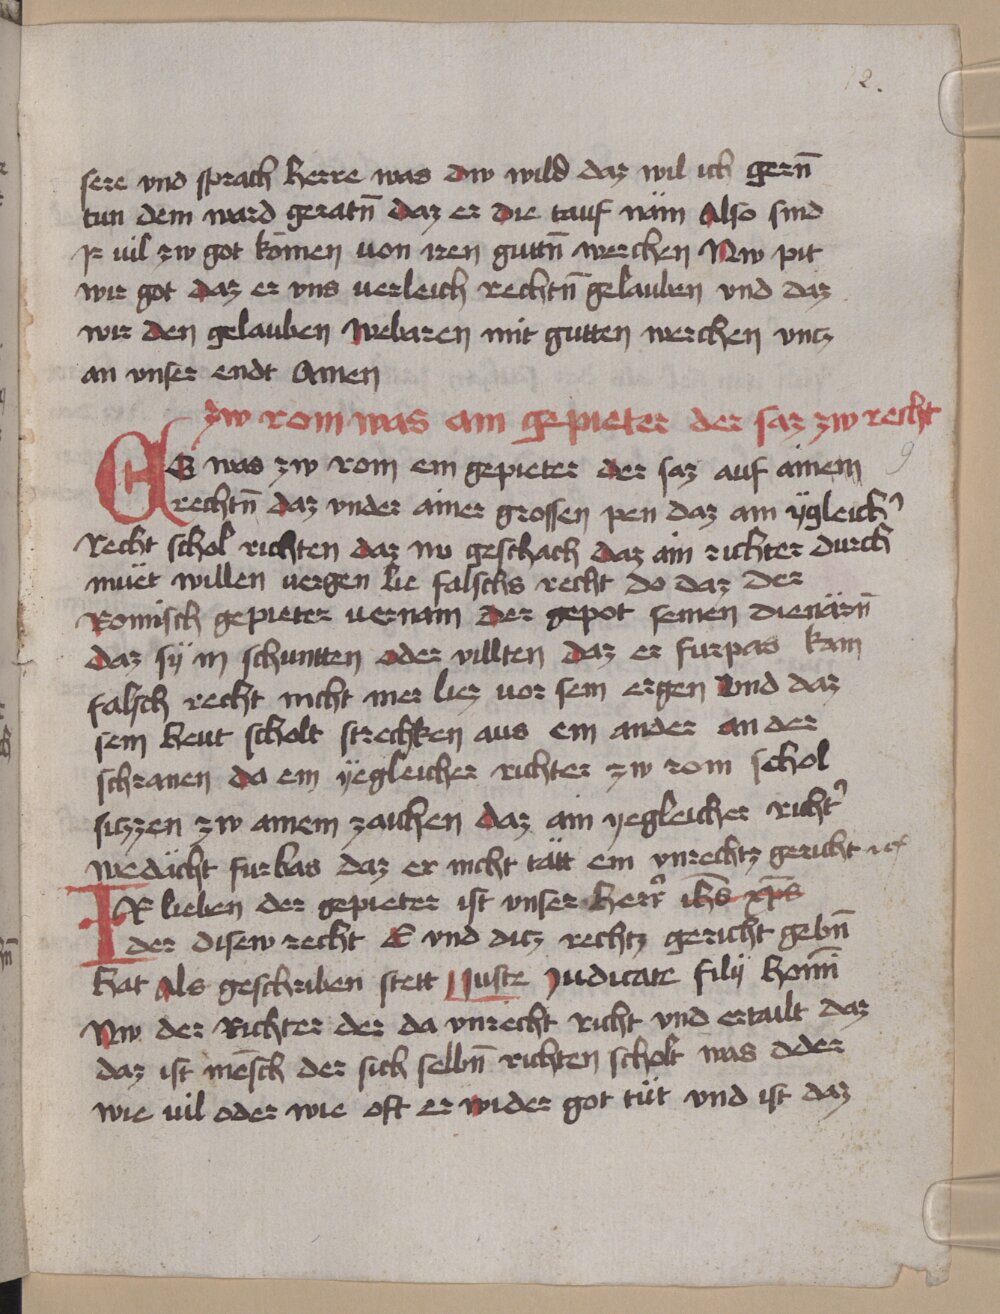 12.
sere vnd sprach herre was dw wild daz wil ich gern̄
tun dem ward geratn̄ daz er die tauf näm Also sind
Jr uil zw got kömen von iren guttn̄ werchen Nw pit
wir got daz er vns uerleich rechtn̄ gelauben vnd daz
wir den gelauben webaren mit gutten werchen vncz
an vnser endt Amen
zw rom was ain gepieter der saz zw recht
ES was zw rom ein gepieter der saz auf ainem
9
rechtn̄ daz vnder ainer grossen pen daz ain ÿgleich
recht schol richten daz nu geschach daz ain richter durch
müet willen uergen lie falschs recht do daz der
Romisch gepieter uernam der gepot seinen dienärn̄
daz sÿ in schuntten oder villten daz er furpas kain
falsch recht nicht mer liez vor sein ergen vnd daz
sein heut scholt strechken aus ein ander an der
schranen da ein ÿegleicher richter zw rom schol
siczzen zw ainem zaichen daz ain yegleicher richt
wedächt furbas daz er nicht tätt ein vnrechtz gericht
IR lieben der gepieter ist vnser herr ihs̄ xp̄s
der disew recht E vnd dicz rechtz gericht gebn̄
hat Als geschriben stett Juste Judicate filij homi
Nw der Richter der da vnrecht richt vnd ertailt daz
daz ist mēsch der sich selbn̄ richten scholt was oder
wie uil oder wie oft er wider got tüt vnd ist daz